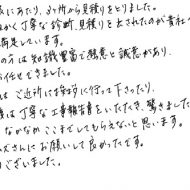 にあたり、3ヶ所から見積りをとりました。
かく丁寧な診断、見積りを出されたのが貴社
満足しています。
の方は知識豊富で熱意と誠意があり、
お任せできました。
は、ご近所にお知らせに行って下さったり、
後は丁寧な工事報告書もいただき、驚きました
なかなかここまでしてもらえないと思います。
ズさんにお願いして良かったです。
ございました。